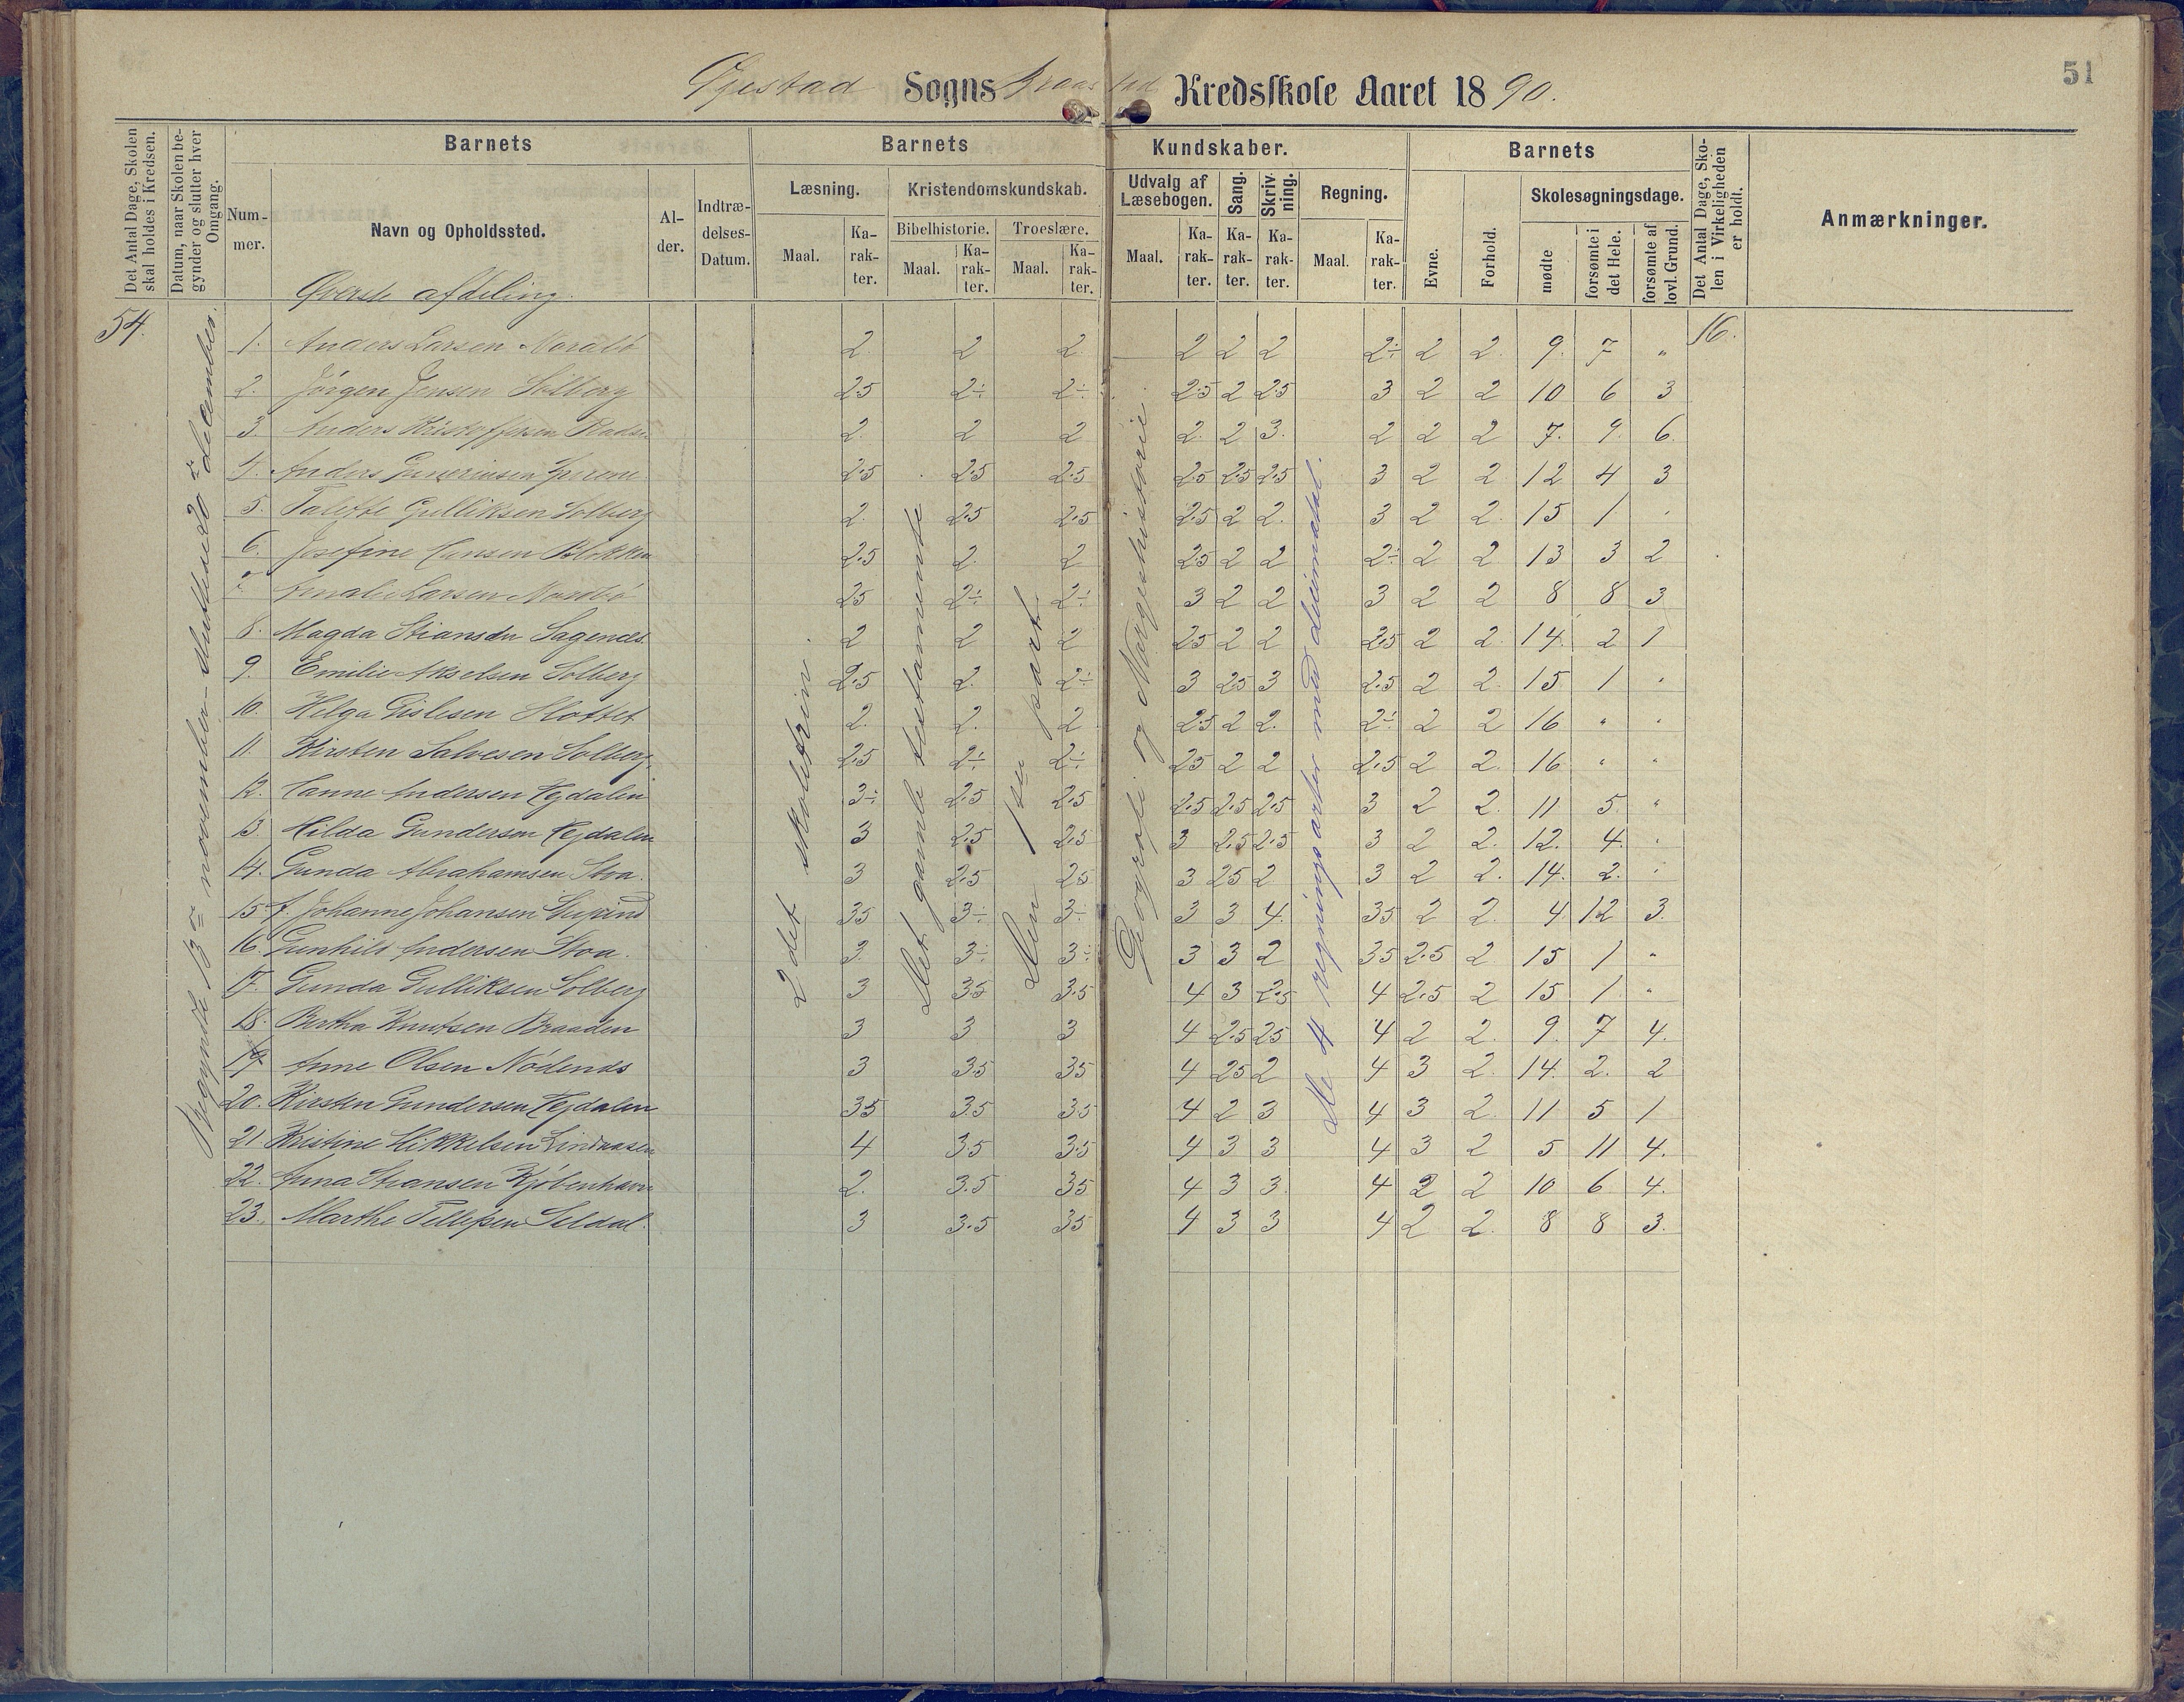 51
Øjestad Sogns Braastad Kredsskole Aaret 1890.
Det Antal Dage, Skolen skal holdes i Kredsen.
Datum, naar Skolen begynder og slutter hver Omgang.
Barnets
Barnets
Kundskaber.
Barnets
Det Antal Dage, Skolen i Virkeligheden er holdt.
Anmærkninger.
Nummer.
Navn og Opholdssted.
Alder.
Indtrædelses-Datum.
Læsning.
Kristendomskundskab.
Udvalg af Læsebogen.
Sang.
Skrivning.
Regning.
Evne.
Forhold.
Skolesøgningsdage.
Bibelhistorie.
Troeslære.
Maal. Karakter. Maal. Karakter. Maal. Karakter. Maal. Karakter. Karakter. Karakter. Maal. Karakter.
mødte
forsømte i det Hele.
forsømte af lovl. Grund.
Øverste afdeling.
54.
16.
Begyndte 13de november. Sluttede 20de december.
2det skoletrin.
Det gamle testamente
Den 1ste part
Geografi og Norgeshistorie.
De 4 regningsarter med decimaltal.
1. Anders Larsen 2. 2 2 2 2 2 2÷ 2 2. 9. 7 "
2. Jørgen Jensen Solberg 2.5 2÷ 2÷ 2.5 2 2.5 3 2 2 10 6 3
3. Anders Kristoffersen 2. 2 2 2. 2 3. 2 2 2 7. 9. 6.
4. Anders 2.5 2.5 2.5 2.5 2.5 2.5 3 2 2 12 4 3
5. Talette Gulliksen Solberg 2. 2.5 2.5 2.5 2 2. 3 2 2. 15 1 "
6. Josefine Hansen Blekken 2.5 2. 2 2.5 2 2 2÷ 2 2 13 3 2
7. Amalie Larsen 2.5 2÷ 2÷ 3 2 2 3 2 2 8 8 3
8. Magda Stiansen Sagenes 2 2 2 2.5 2 2 2.5 2 2. 14. 2 1
9. Emilie Akselsen Solberg 2.5 2. 2÷ 3 2.5 3 2.5 2 2. 15 1 "
10. Helga Gislesen Slottet 2. 2. 2 2.5 2 2. 2÷ 2 2 16 " "
11. Kirsten Salvesen Solberg. 2.5 2÷ 2÷ 2.5 2 2 2.5 2 2. 16 " "
12. Hanne Andersen Hejdalen 3÷ 2.5 2.5 2.5 2.5 2.5 3 2 2. 11 5. "
13. Hilda Gundersen Hejdalen 3 2.5 2.5 3 2.5 2.5 3 2 2. 12. 4. "
14. Gunda Abrahamsen Stoa. 3 2.5 2.5 3 2.5 2 3 2 2. 14. 2. "
15. J. Johanne Johansen 3.5 3÷ 3÷ 3 3 4. 3.5 2 2. 4. 12 3.
16. Gunhild Andersen Stoa. 3. 3÷ 3÷ 3 3 2 3.5 2.5 2 15 1 "
17. Gunda Gulliksen Solberg 3 3.5 3.5 4 3 2.5 4 2.5 2 15 1. "
18. Bertha Knutsen Braaden 3 3 3 4 2.5 2.5 4 2 2. 9. 7 4.
19. Anne Olsen Nødenes 3 3.5 3.5 4 2.5 2 4 3 2. 14. 2. 2
20. Kirsten Gundersen Hejdalen 3.5 3.5 3.5 4 2 3 4 3 2. 11 5 1
21. Kristine Mikkelsen Lindaasen 4 3.5 3.5 4 3 3 4 3 2 5 11 4.
22. Anna Stiansen Kjøbenhavn 2. 3.5 3.5 4 3 3. 4 2 2 10 6 4.
23. Marthe Tellefsen Seldal. 3 3.5 3.5 4 3 3 4 2 2. 8 8 3.